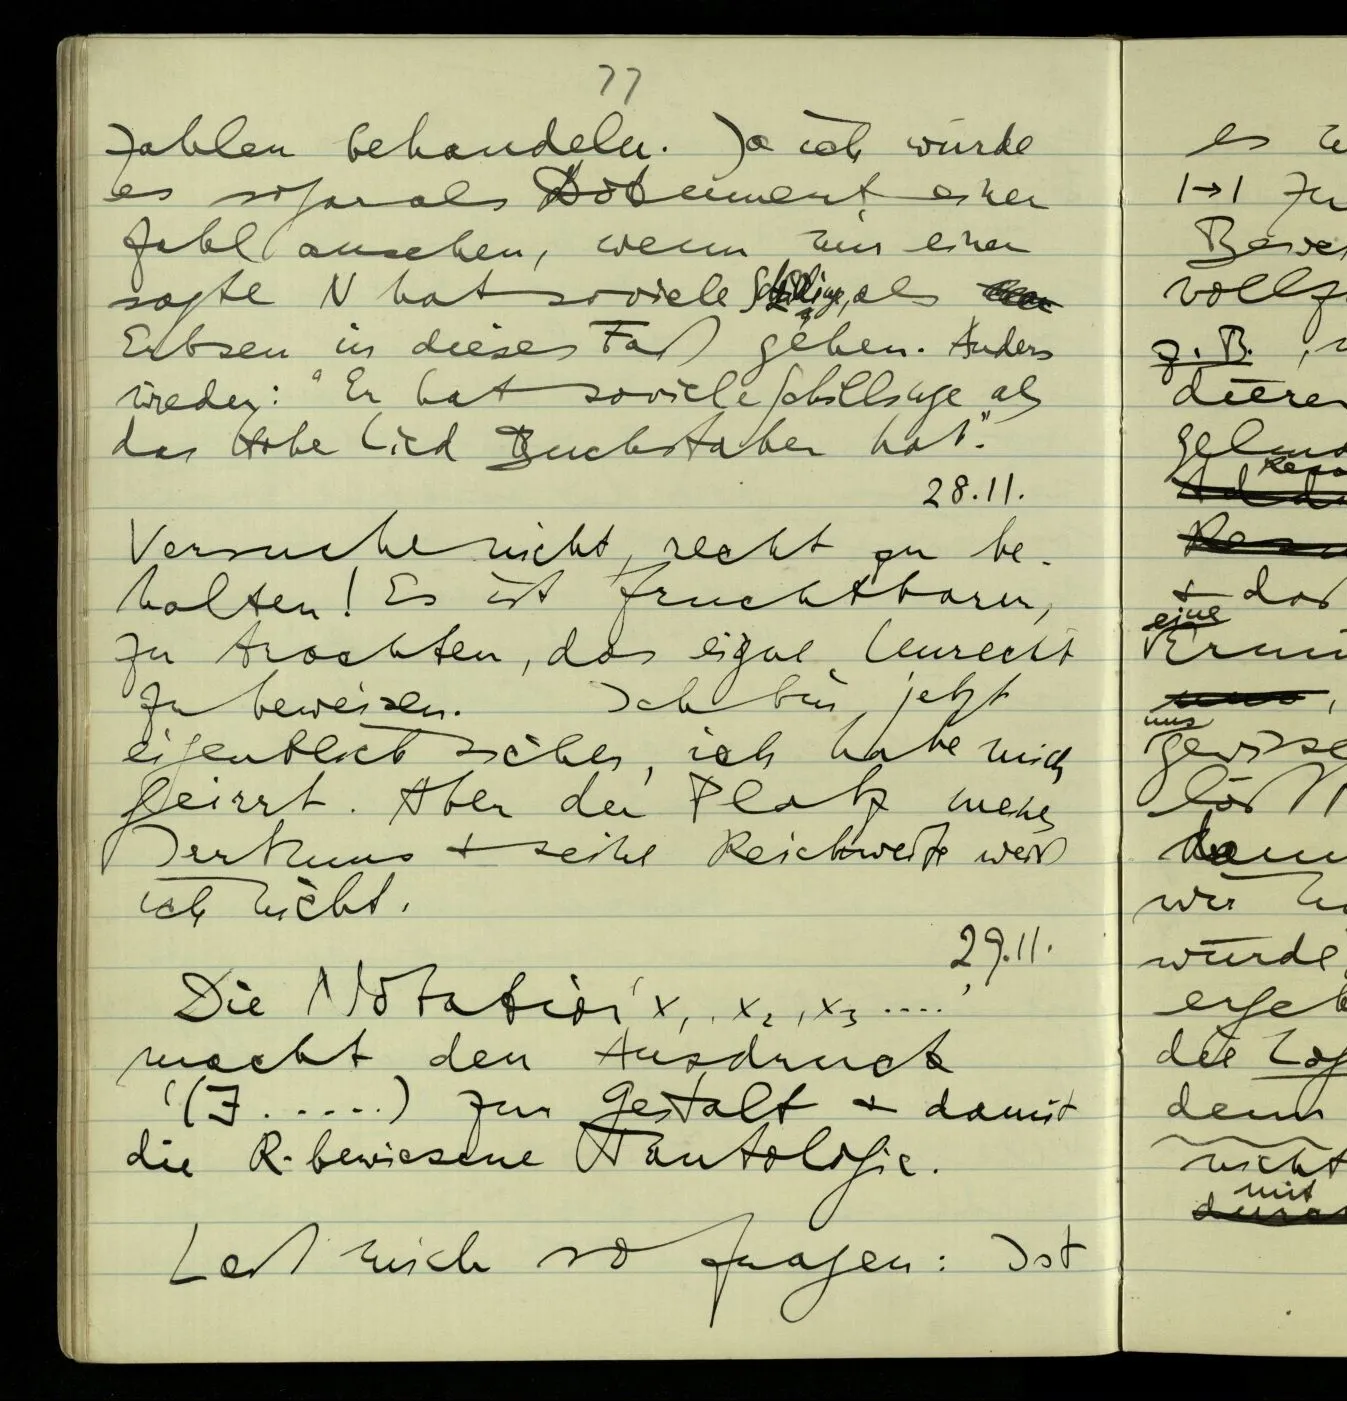 77
Zahlen behandeln. Ja ich würde
es sogar als Dokument einer
Zahl ansehen, wenn mir einer
sagte N hat soviele Schillinge, als
Erbsen in dieses Faß gehen. Anders
wieder: "Er hat soviele Schillinge als
das Hohe Lied Buchstaben hat".
28.11.
Versuche nicht, recht zu be-
halten! Es ist fruchtbarer,
zu trachten, das eigne Unrecht
zu beweisen. Ich bin jetzt
eigentlich sicher, ich habe mich
geirrt. Aber den Platz meines
Irrtums + seine Reichweite weiß
ich nicht.
29.11.
Die Notation 'x₁, x₂, x₃ ....'
macht den Ausdruck
'(∃ ......) zur Gestalt + damit
die R-bewiesene Tautologie.
Laß mich so fragen: Ist
es
1→1 zu
z.B.
+ daß
eine
uns
wir
würde
die
denn
nicht
mit